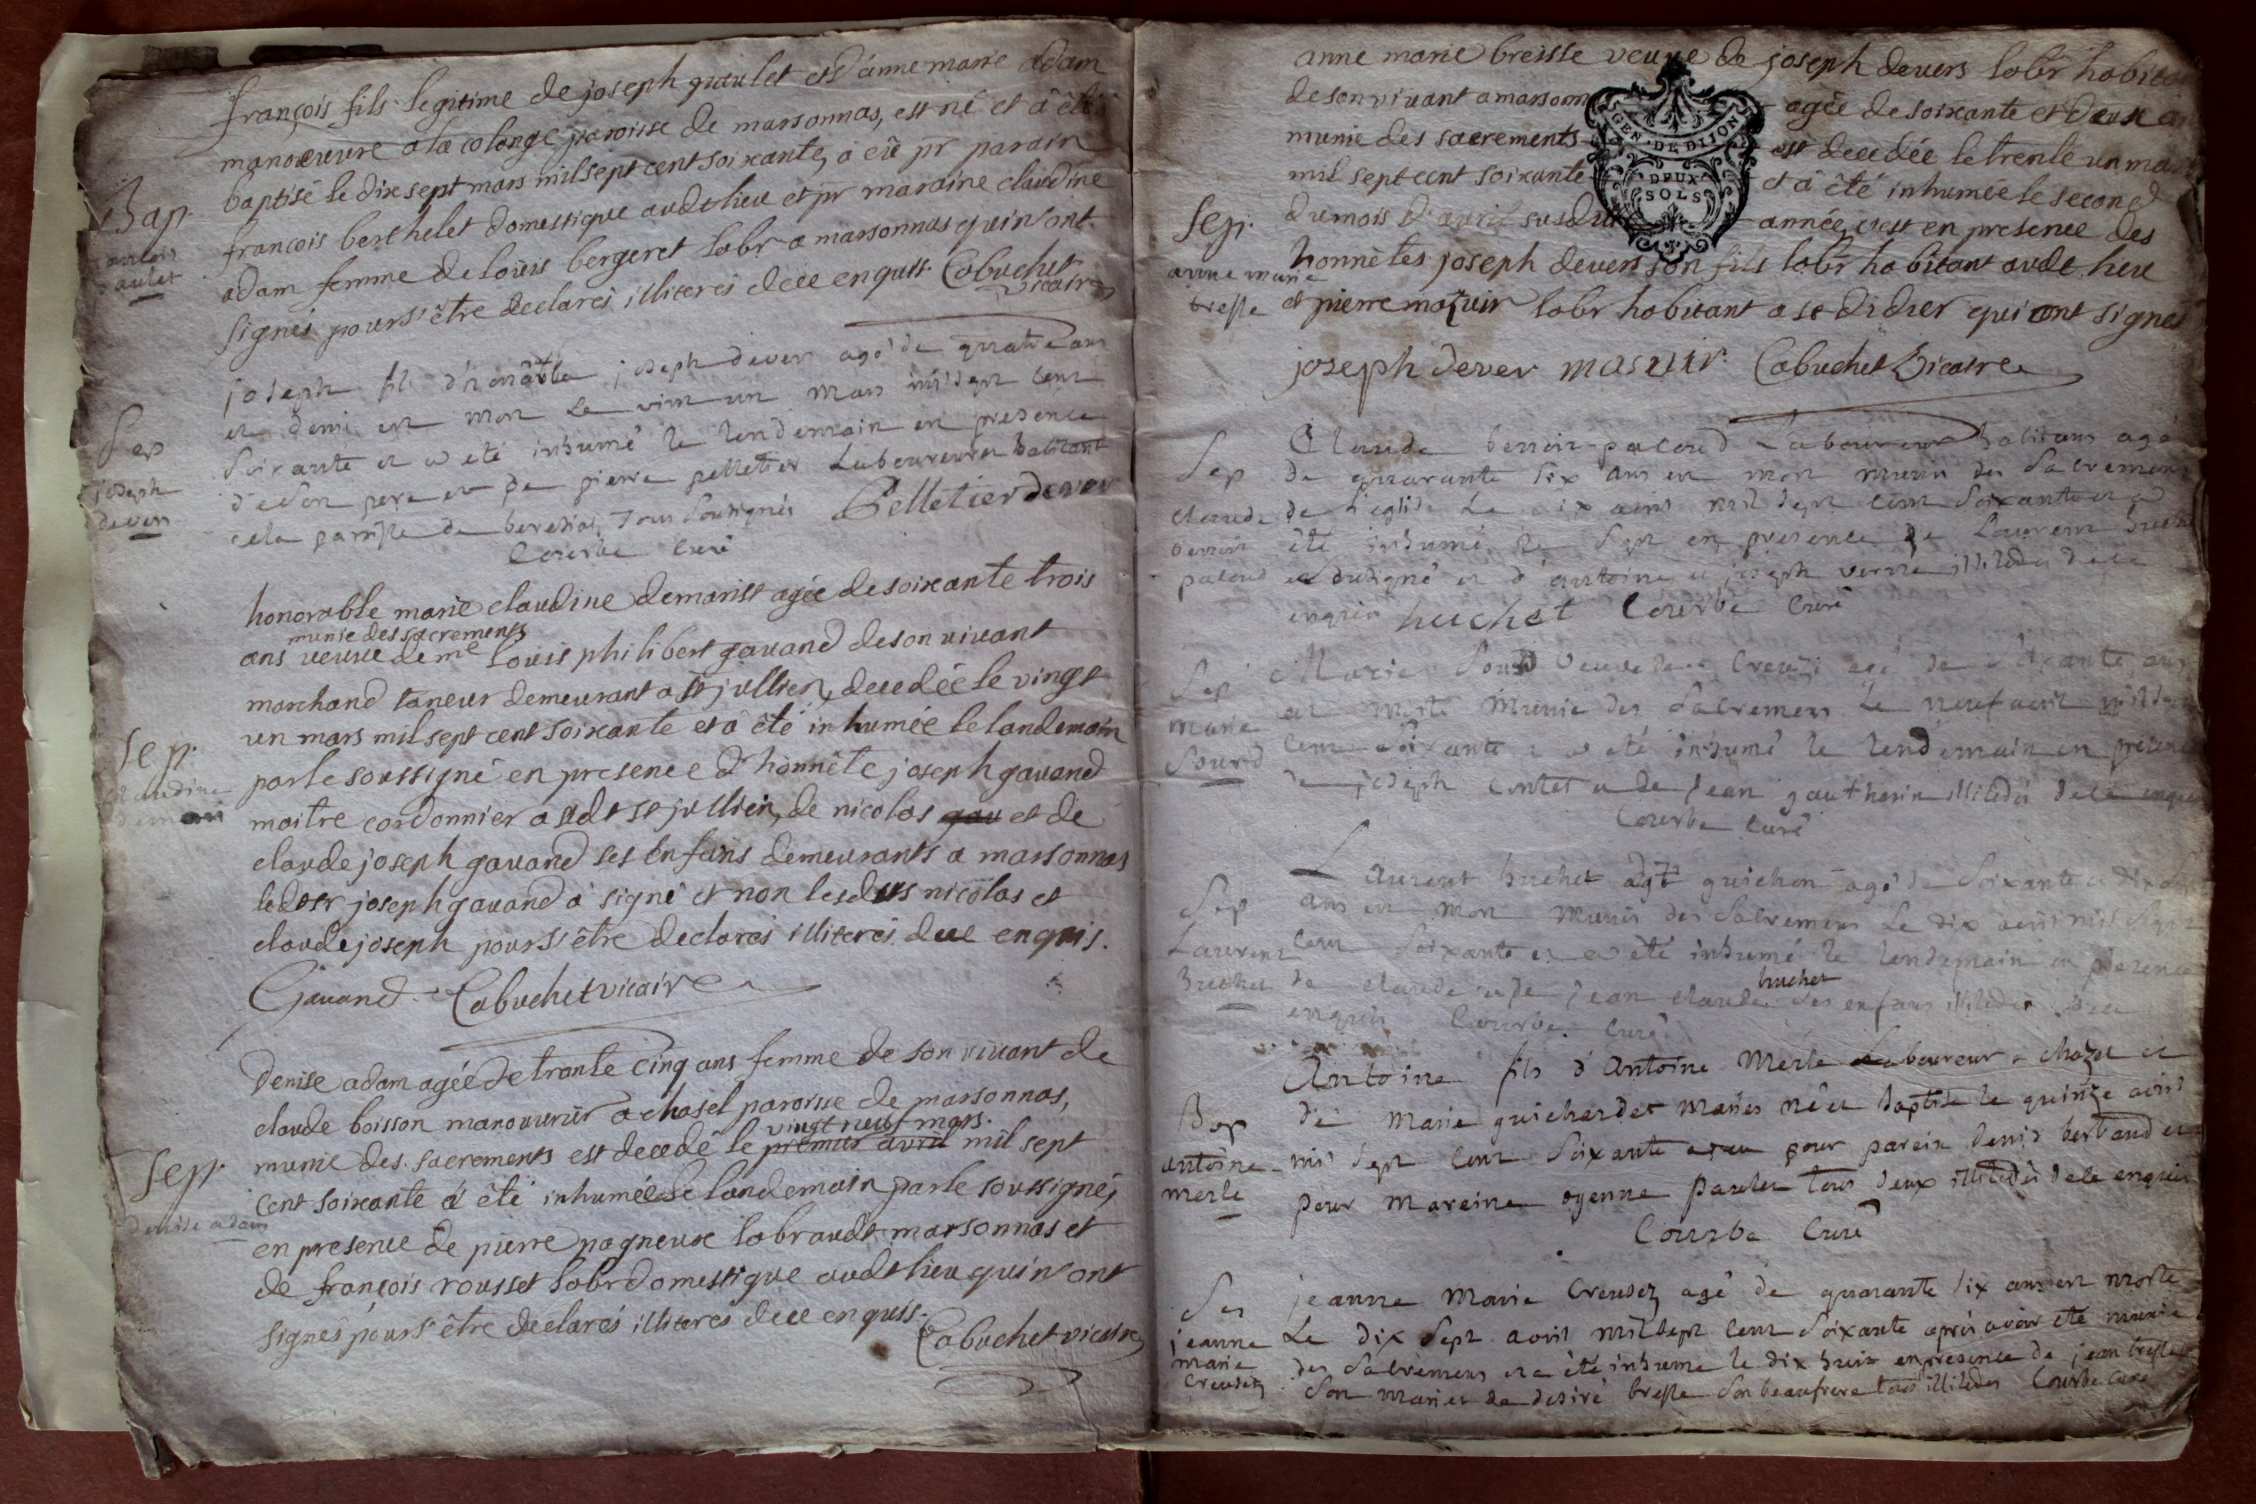 françois fils legitime de joseph gaulet et d'anne marie adam
manoeuvre a la colonge paroisse de marsonnas, est né et â êté
baptisé le dix sept mars mil sept cent soixante, a eü pr parain
françois berthelet domestique audt lieu et pr maraine claudine
adam femme de loüis bergeret labr a marsonnas qui n'ont
signés pour s'être declarés illiterés de ce enquis. Cabuchet
vicaire
Bap.
joseph fils d'honorable joseph dever agé de quatre ans
et demi est mort le vint un mars mil sept cent
soixante et a eté inhumé le lendemain en presence
de son pere et de pierre pelletier laboureurs habitant
de la paroisse de soussignés Pelletier dever
Courbe curé
Sep
joseph
devers
honorable marie claudine demarist agée de soixante trois
munie des sacrements
ans veuve de me louis philibert gavand de son vivant
marchand taneur demeurant a st jullien, decedée le vingt
un mars mil sept cent soixante et â êté inhumée le landemain
par le soussigné en presence d'honnête joseph gavand
maitre cordonnier audt st jullien, de nicolas gav et de
claude joseph gavand ses enfans demeurants a marsonnas
ledsr joseph gavand â signé et non lesdits nicolas et
claude joseph pour s'être declarés illiterés de ce enquis.
Gavand. Cabuchet vicaire
Sep.
claudine
denise adam agée de trante cinq ans femme de son vivant de
claude boisson manouvrier a chasel paroisse de marsonnas,
vingt neuf mars.
munie des sacrements est decedé le premier avril mil sept
cent soixante â êté inhumée le landemain par le soussigné,
en presence de pierre pagneux labr audt marsonnas et
de françois rousset labr domestique audt lieu qui n'ont
signés pour s'être declarés illiterés de ce enquis.
Cabuchet vicaire
Sep.
denise adam
anne marie breisse veuve de joseph devers labr habitant
de son vivant a marsonnas agée de soixante et deux ans
munie des sacrements est decedée le trente un mars
mil sept cent soixante et â êté inhumée le second
du mois d'avril susdite année, c'est en presence des
honnêtes joseph devers son fils labr habitant audt lieu
et pierre mazuir labr habitant a st didier qui ont signés
joseph dever masuir Cabuchet vicaire
GEN. DE DIJON
DEUX
SOLS
Sep.
anne marie
bresse
Claude perrin-pacoud laboureur habitant agé
de quarante six ans est mort muni des sacremens
de l'eglise le six avril mil sept cent soixante et a
été inhumé le sept en presence de Laurent huchet
soussigné et d'antoine et joseph verne illiterés de ce
enquis huchet Courbe curé
Sep
claude
perrin
pacoud
Marie Sourd veuve de Creusé agé de soixante ans
est morte munie des sacremens le neuf avril mil sept
cent soixante et a eté inhumé le lendemain en presence
de joseph contet et de jean gautherin illiterés de ce enquis
Courbe curé
Sep
marie
Sourd
Laurent huchet guichon agé de soixante et
ans est mort munis des sacremens le dix avril mil sept
cent soixante et a eté inhumé le lendemain en presence
huchet
de claude et de jean claude ses enfans illiterés de ce
enquis Courbe curé
Sep
Laurent
huchet
Antoine fils d'Antoine Merle laboureur a chazel et
de Marie guichardet mariés né et baptisé le quinze avril
mil sept cent soixante a eu pour parein denis bertrand et
pour mareine oyenne paulet tous deux illiterés de ce enquis
Courbe curé
Bap
antoine
merle
jeanne Marie Creusez agé de quarante six ans est morte
le dix sept avril mil sept cent soixante après avoir eté munie
des sacremens et a été inhumé le dix huit en presence de jean bresse
son mari et de desiré bresse son beaufrere tous illiterés Courbe curé
Sep
jeanne
marie
Creusez